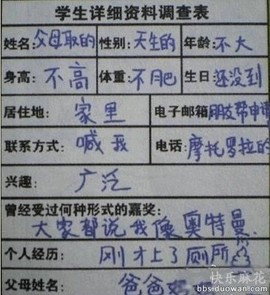 学生详细资料调查表
姓名:父母取的 性别:天生的 年龄:不大
身高:不高 体重:不肥 生日 还没到
居住地: 家里 电子邮箱 朋友帮申请
联系方式: 喊我 电话: 摩托罗拉的
兴趣: 广泛
曾经受过何种形式的嘉奖:
大家都说我像奥特曼.
个人经历: 刚才上了厕所
父母姓名: 爸爸
快乐麻花
bbs.duowan.com